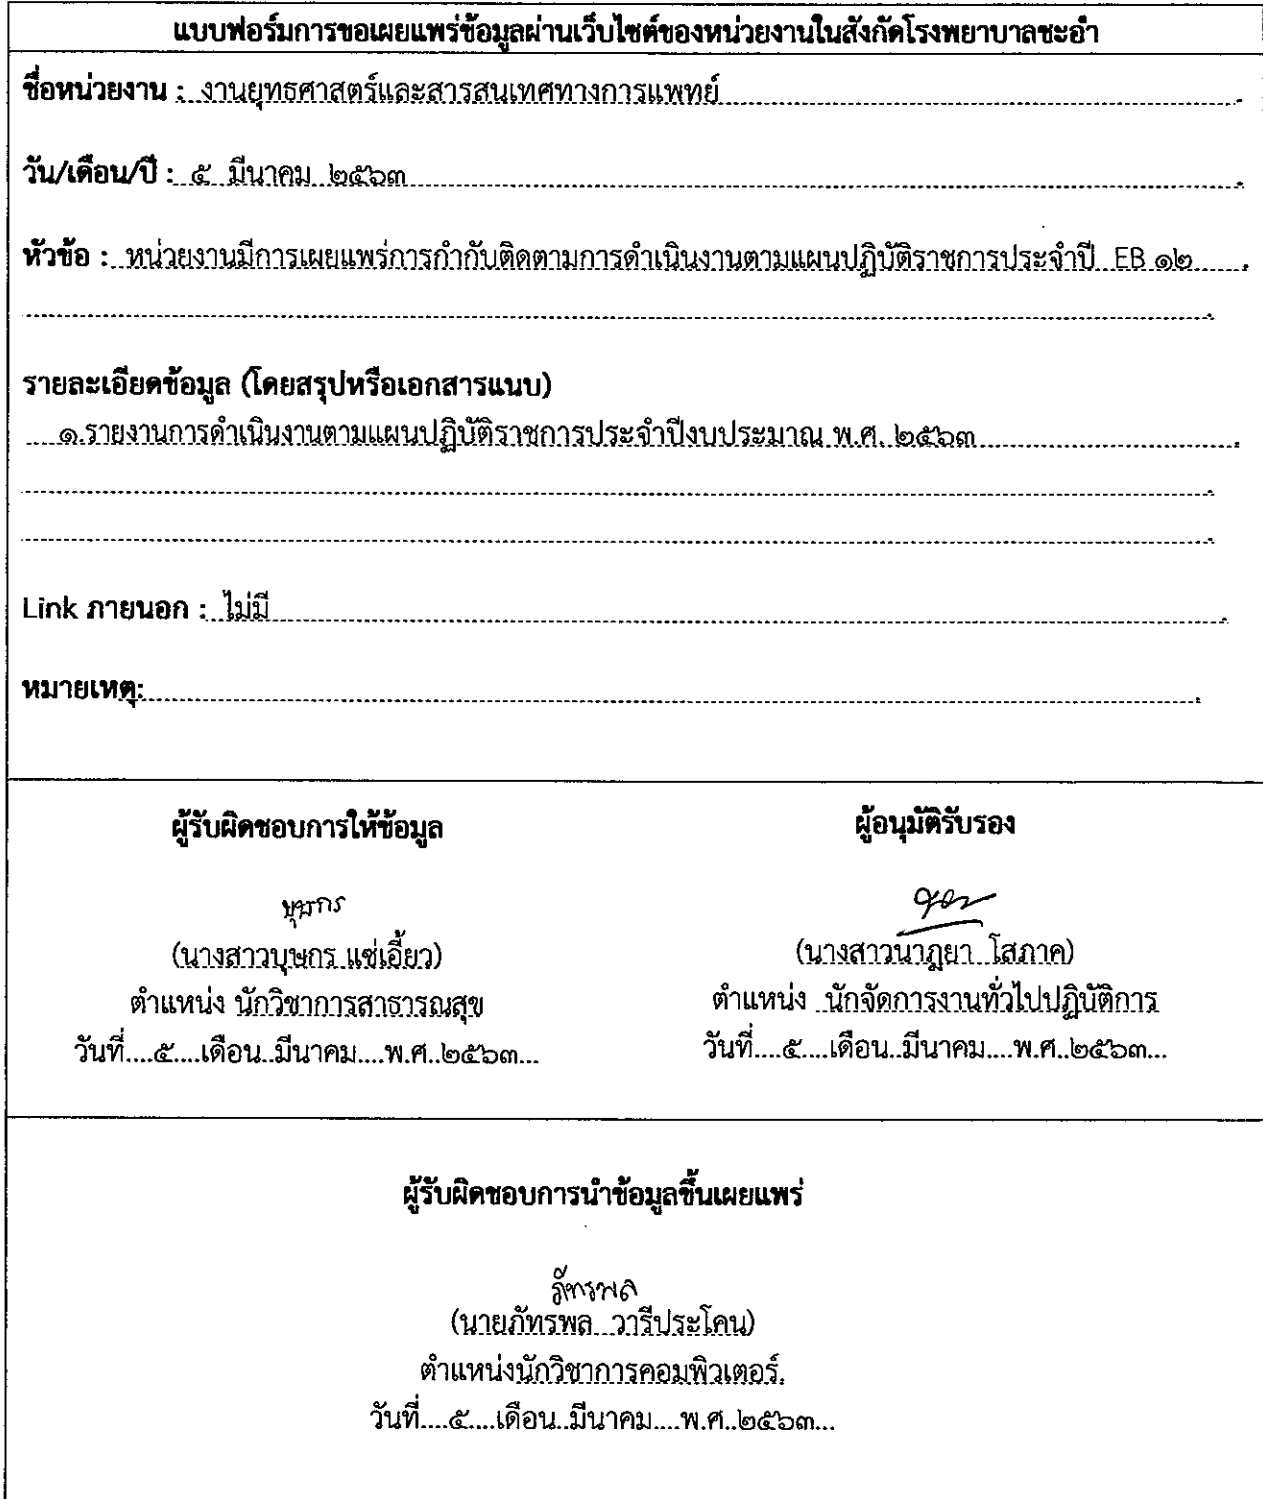 แบบฟอร์มการขอเผยแพร่ข้อมูลผ่านเว็บไซต์ของหน่วยงานในสังกัดโรงพยาบาลชะอำ
ชื่อหน่วยงาน : งานยุทธศาสตร์และสารสนเทศทางการแพทย์
วัน/เดือน/ปี : ๕ มีนาคม ๒๕๖๓
หัวข้อ : หน่วยงานมีการเผยแพร่การกำกับติดตามการดำเนินงานตามแผนปฏิบัติราชการประจำปี EB ๑๒
รายละเอียดข้อมูล (โดยสรุปหรือเอกสารแนบ)
๑.รายงานการดำเนินงานตามแผนปฏิบัติราชการประจำปีงบประมาณ พ.ศ. ๒๕๖๓
Link ภายนอก : ไม่มี
หมายเหตุ:
ผู้รับผิดชอบการให้ข้อมูล
ผู้อนุมัติรับรอง
บุษกร
(นางสาวบุษกร แซ่เอี้ยว)
(นางสาวนาฏยา โสภาค)
ตำแหน่ง นักวิชาการสาธารณสุข
ตำแหน่ง นักจัดการงานทั่วไปปฏิบัติการ
วันที่....๕....เดือน..มีนาคม....พ.ศ..๒๕๖๓...
วันที่....๕....เดือน..มีนาคม....พ.ศ..๒๕๖๓...
ผู้รับผิดชอบการนำข้อมูลขึ้นเผยแพร่
ภัทรพล
(นายภัทรพล วารีประโคน)
ตำแหน่งนักวิชาการคอมพิวเตอร์.
วันที่....๕....เดือน..มีนาคม....พ.ศ..๒๕๖๓...